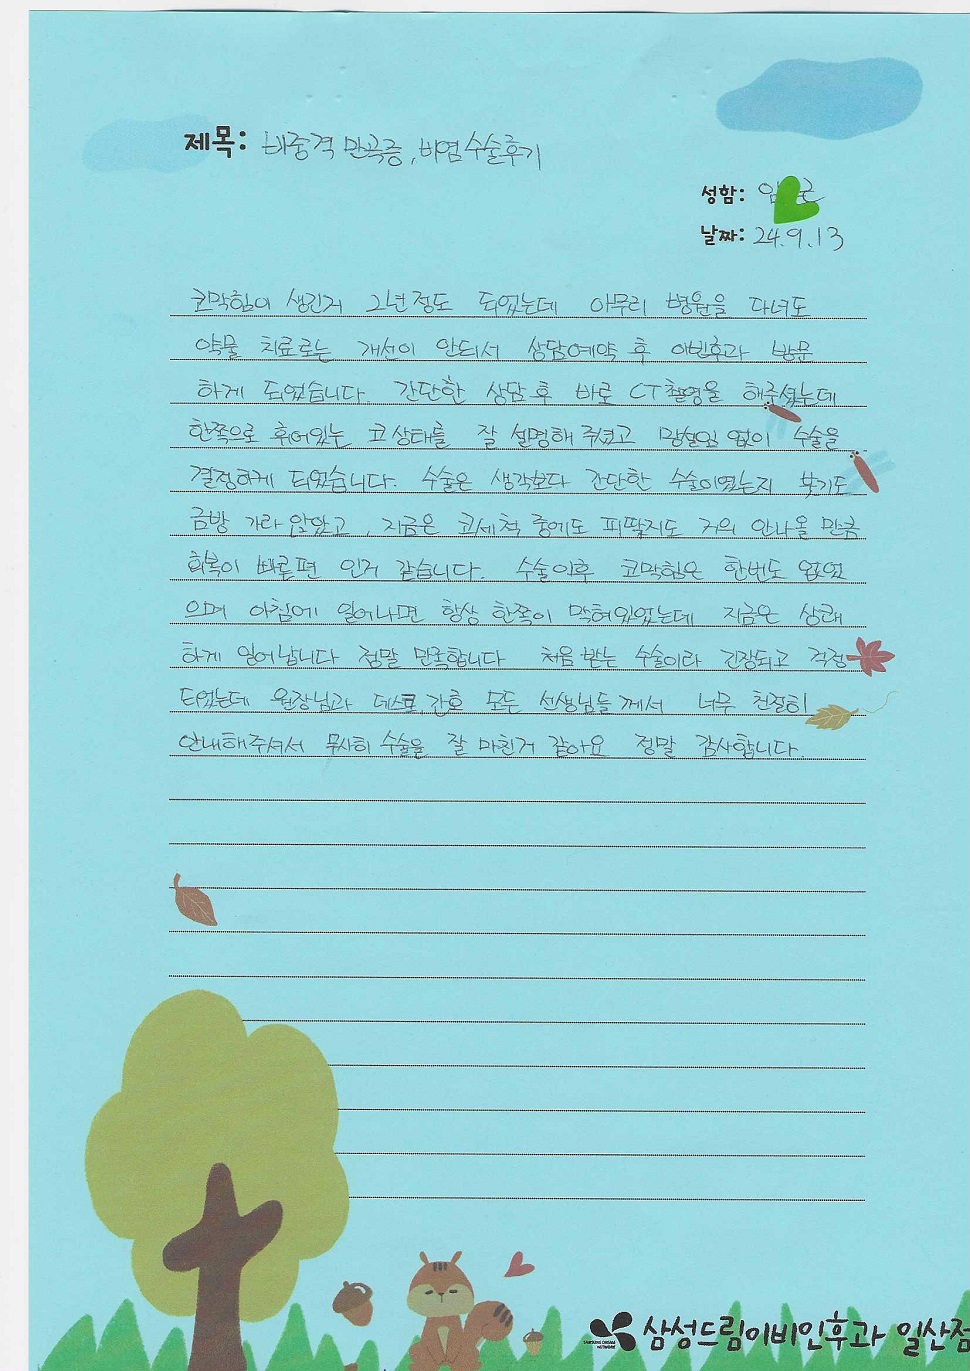 제목: 비중격 만곡증, 비염 수술후기
성함: 임
날짜: 24.9.13
코막힘이 생긴거 2년 정도 되었는데 아무리 병원을 다녀도
약물 치료로는 개선이 안되서 상담예약 후 이빈후과 방문
하게 되었습니다. 간단한 상담 후 바로 CT촬영을 해주셨는데
한쪽으로 휘어있는 코 상태를 잘 설명해 주셨고 망설임 없이 수술을
결정하게 되었습니다. 수술은 생각보다 간단한 수술이였는지 붓기도
금방 가라 앉았고, 지금은 코세척 중에도 피딱지도 거의 안나올 만큼
회복이 빠른편 인거 같습니다. 수술이후 코막힘은 한번도 없었
으며 아침에 일어나면 항상 한쪽이 막혀있었는데 지금은 상쾌
하게 일어납니다 정말 만족합니다 처음 받는 수술이라 긴장되고 걱정
되었는데 원장님과 데스크, 간호 모든 선생님들 께서 너무 친절히
안내해주셔서 무사히 수술을 잘 마친거 같아요 정말 감사합니다.
삼성드림이비인후과 일산점